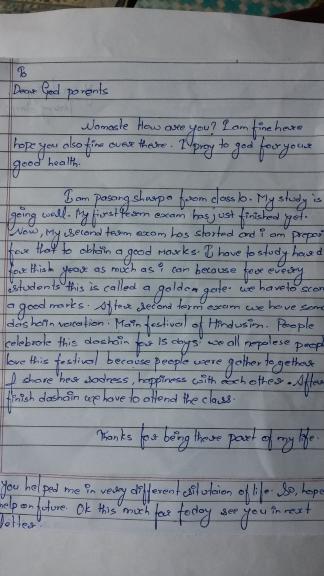 Dear God parents
Namaste How are you? I am fine here
hope you also fine over there. I pray to god for your
good health.
I am pasang sharpa from class 10. My study is
going well. My first term exam has just finished yet.
Now, My second term exam has started and i am prepai
for that to obtain a good marks. I have to study hard
for this year as much as i can because for every
students this is called a golden gate. we have to scor
a good marks. After second term exam we have som
dashain vacation. Main festival of Hinduism. People
celebrate this dashain for 15 days. we all nepalese peop
love this festival because people were gather together
& share her sadness, happiness with each other. After
finish dashain we have to attend the class.
Thanks for being there part of my life.
you helped me in very different situtaion of life. So, hope
help on future. Ok this much for today see you in next
letter.